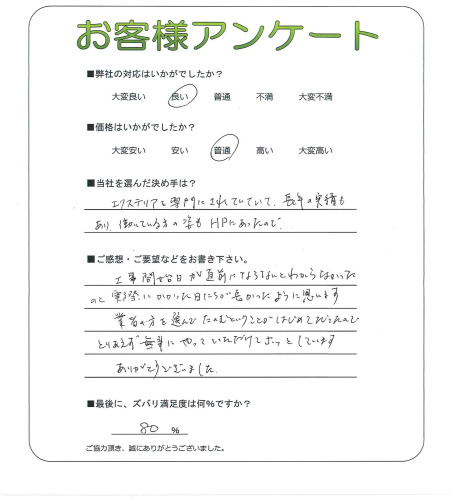 お客様アンケート
■弊社の対応はいかがでしたか?
大変良い 良い 普通 不満 大変不満
■価格はいかがでしたか?
大変安い 安い 普通 高い 大変高い
■当社を選んだ決め手は?
エクステリアを専門にされていて、長年の実績も
あり、働いている方の姿もHPにあったので
■ご感想・ご要望などをお書き下さい。
工事開始日が直前にならないとわからなかった
のと実際にかかった日にちが長かったように思います
業者の方を選んでたのむということがはじめてだったので
とりあえず無事にやっていただけてホッとしています
ありがとうございました。
■最後に、ズバリ満足度は何%ですか?
80 %
ご協力頂き、誠にありがとうございました。